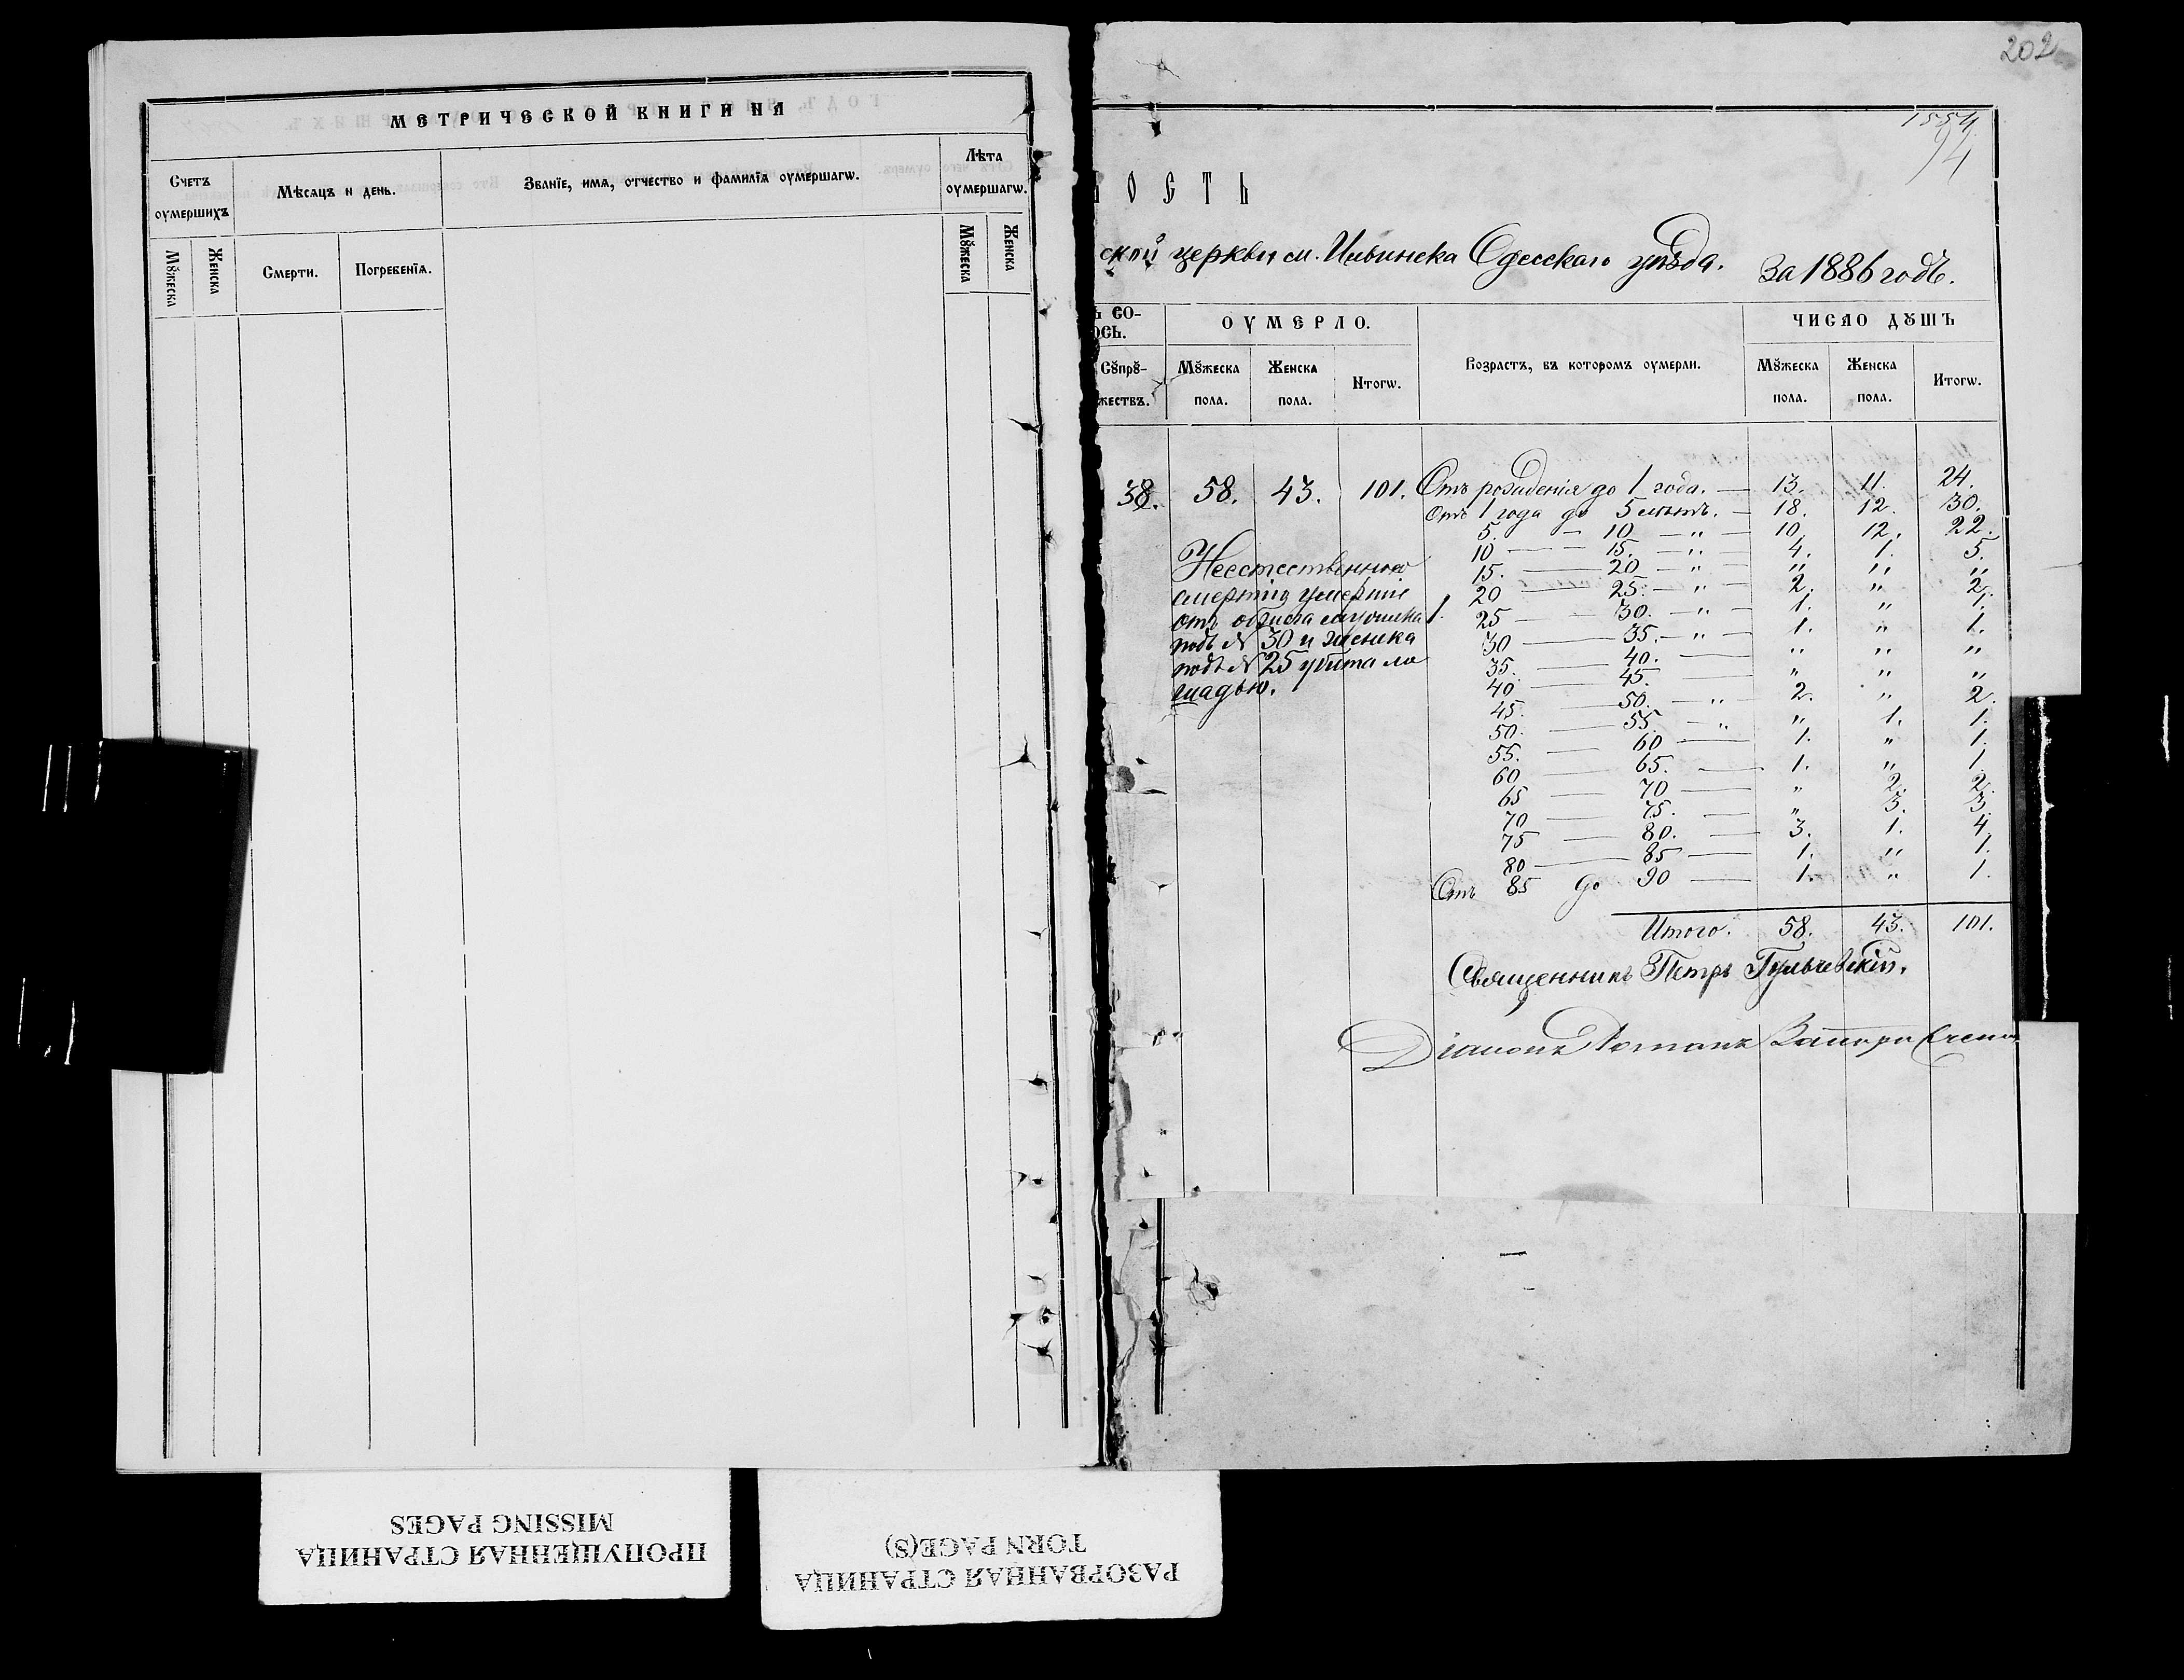 МЕТРИЧЕСКОЙ КНИГИ НА
Счетъ оумершихъ
Мѣсяцъ и день.
Званїе, имѧ, отчество и фамилїѧ оумершагѡ.
Лѣта оумершагѡ.
Мꙋжеска
Женска
Смерти.
Погребенїѧ.
Мꙋжеска
Женска
202
1554
94
ОСТЬ
ской церкви м. Ильинска Одесскаго уѣзда. За 1886 годъ.
Ъ СО-
ОСЬ.
ОУМЕРЛО.
Возрастъ, въ которомъ оумерли.
ЧИСЛО ДꙊШЪ
Сꙋпрꙋ-
жествъ.
Мꙋжеска пола.
Женска пола.
Итогѡ.
Мꙋжеска пола.
Женска пола.
Итогѡ.
38. 58. 43. 101. Отъ рожденія до 1 года. — 13. 11. 24.
Отъ 1 года до 5 лѣтъ. — 18. 12. 30.
5. — 10 — „ — 10. 12. 22.
10 — 15. — „ — 4. 1. 5.
15. — 20 — „ — „ „ „
20 — 25. — „ — 2. „ 2.
25 — 30. — „ — 1. „ 1.
30 — 35. — „ — 1. „ 1.
35. — 40. — „ „ „
40 — 45. „ „ „
45. — 50. — „ 2. „ 2.
50. — 55. — „ „ 1. 1.
55. — 60 — 1. „ 1.
60 — 65. — 1. „ 1.
65 — 70 — „ 2. 2.
70 — 75. — „ 3. 3.
75 — 80. — 3. 1. 4.
80 — 85 — 1. „ 1.
Отъ 85 до 90 — 1. „ 1.
Неестественною
смертію умершіе
отъ 1.
подъ № 30 и женска
подъ № 25 убита ло
шадью.
Итого. 58. 43. 101.
Священникъ Петръ Гульчевскій.
Діаконъ Романъ
ПРОПУЩЕННАЯ СТРАНИЦА
MISSING PAGES
РАЗОРВАННАЯ СТРАНИЦА
TORN PAGE(S)